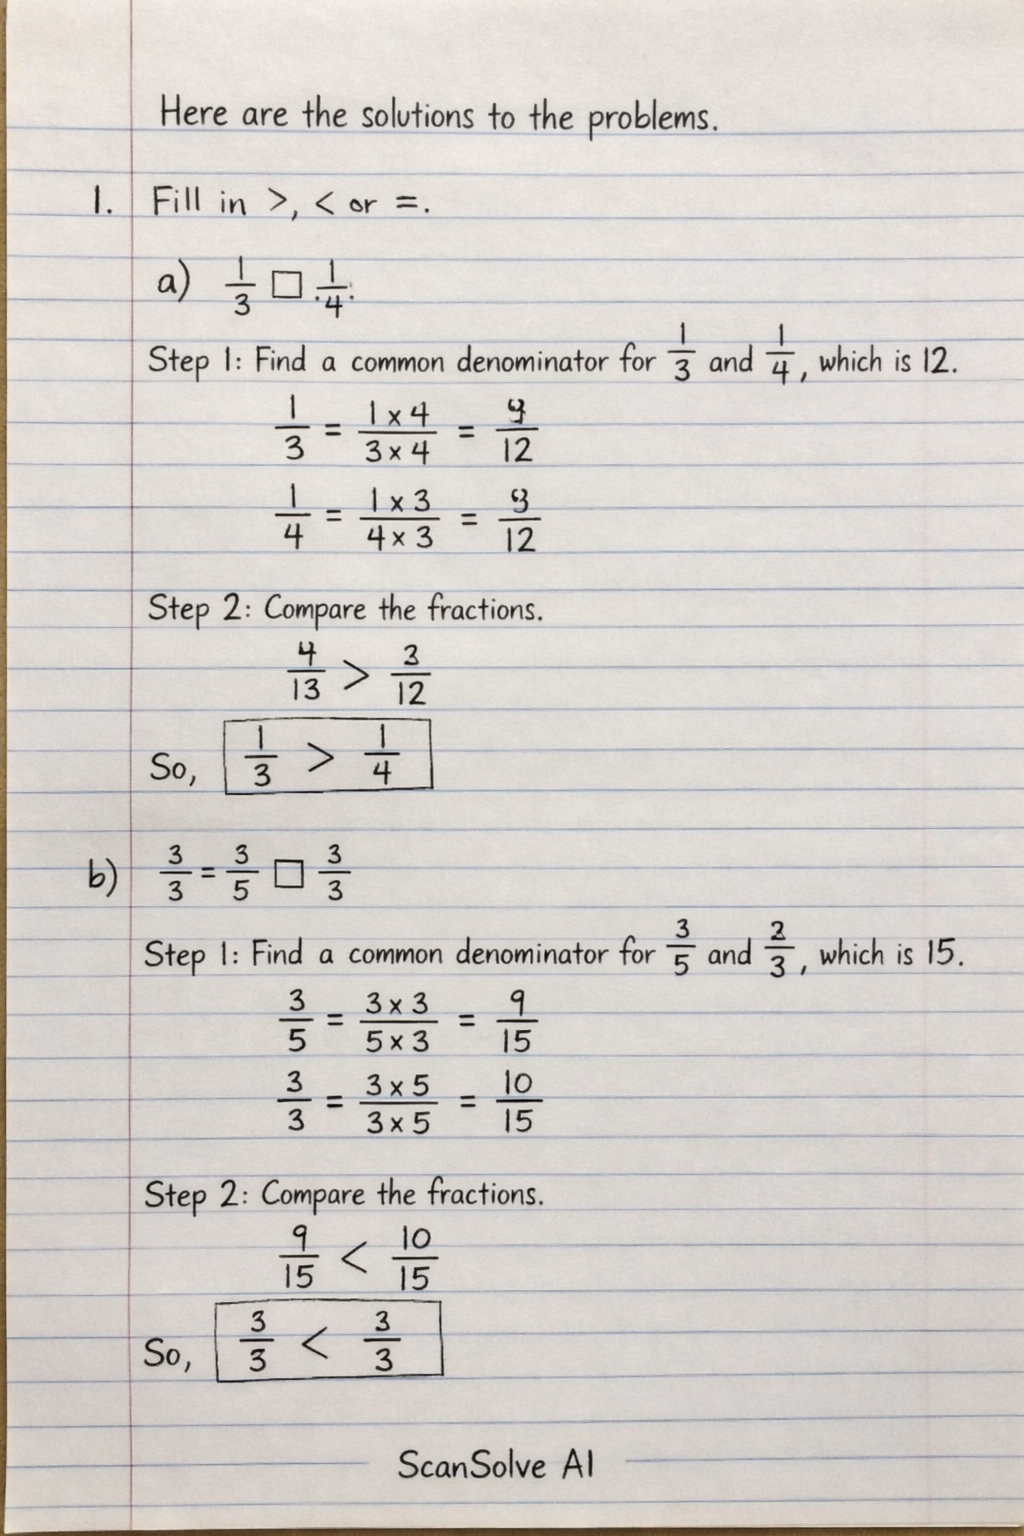 Here are the solutions to the problems.
1. Fill in >, < or =.
a) 1/3 □ 1/4
Step 1: Find a common denominator for 1/3 and 1/4, which is 12.
1/3 = 1 x 4 / 3 x 4 = /12
1/4 = 1 x 3 / 4 x 3 = /12
Step 2: Compare the fractions.
4/13 > 3/12
So, 1/3 > 1/4
b) 3/3 = 3/5 □ 3/3
Step 1: Find a common denominator for 3/5 and 2/3, which is 15.
3/5 = 3 x 3 / 5 x 3 = 9/15
3/3 = 3 x 5 / 3 x 5 = 10/15
Step 2: Compare the fractions.
9/15 < 10/15
So, 3/3 < 3/3
ScanSolve AI